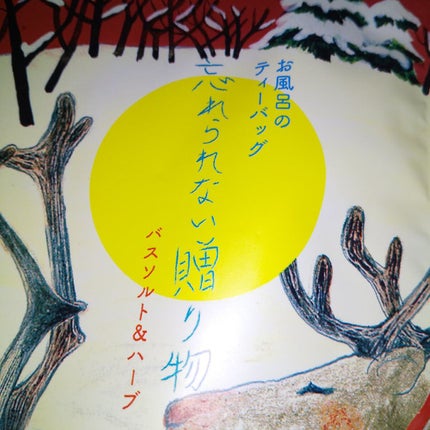 お風呂の
ティーバッグ
忘れられない贈り物
バスソルト&ハーブ